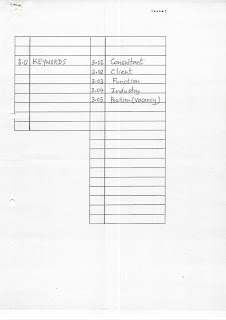 3.0 KEYWORDS 3.01 Consultant
3.02 Client
3.03 Function
3.04 Industry
3.05 Position (Vacancy)